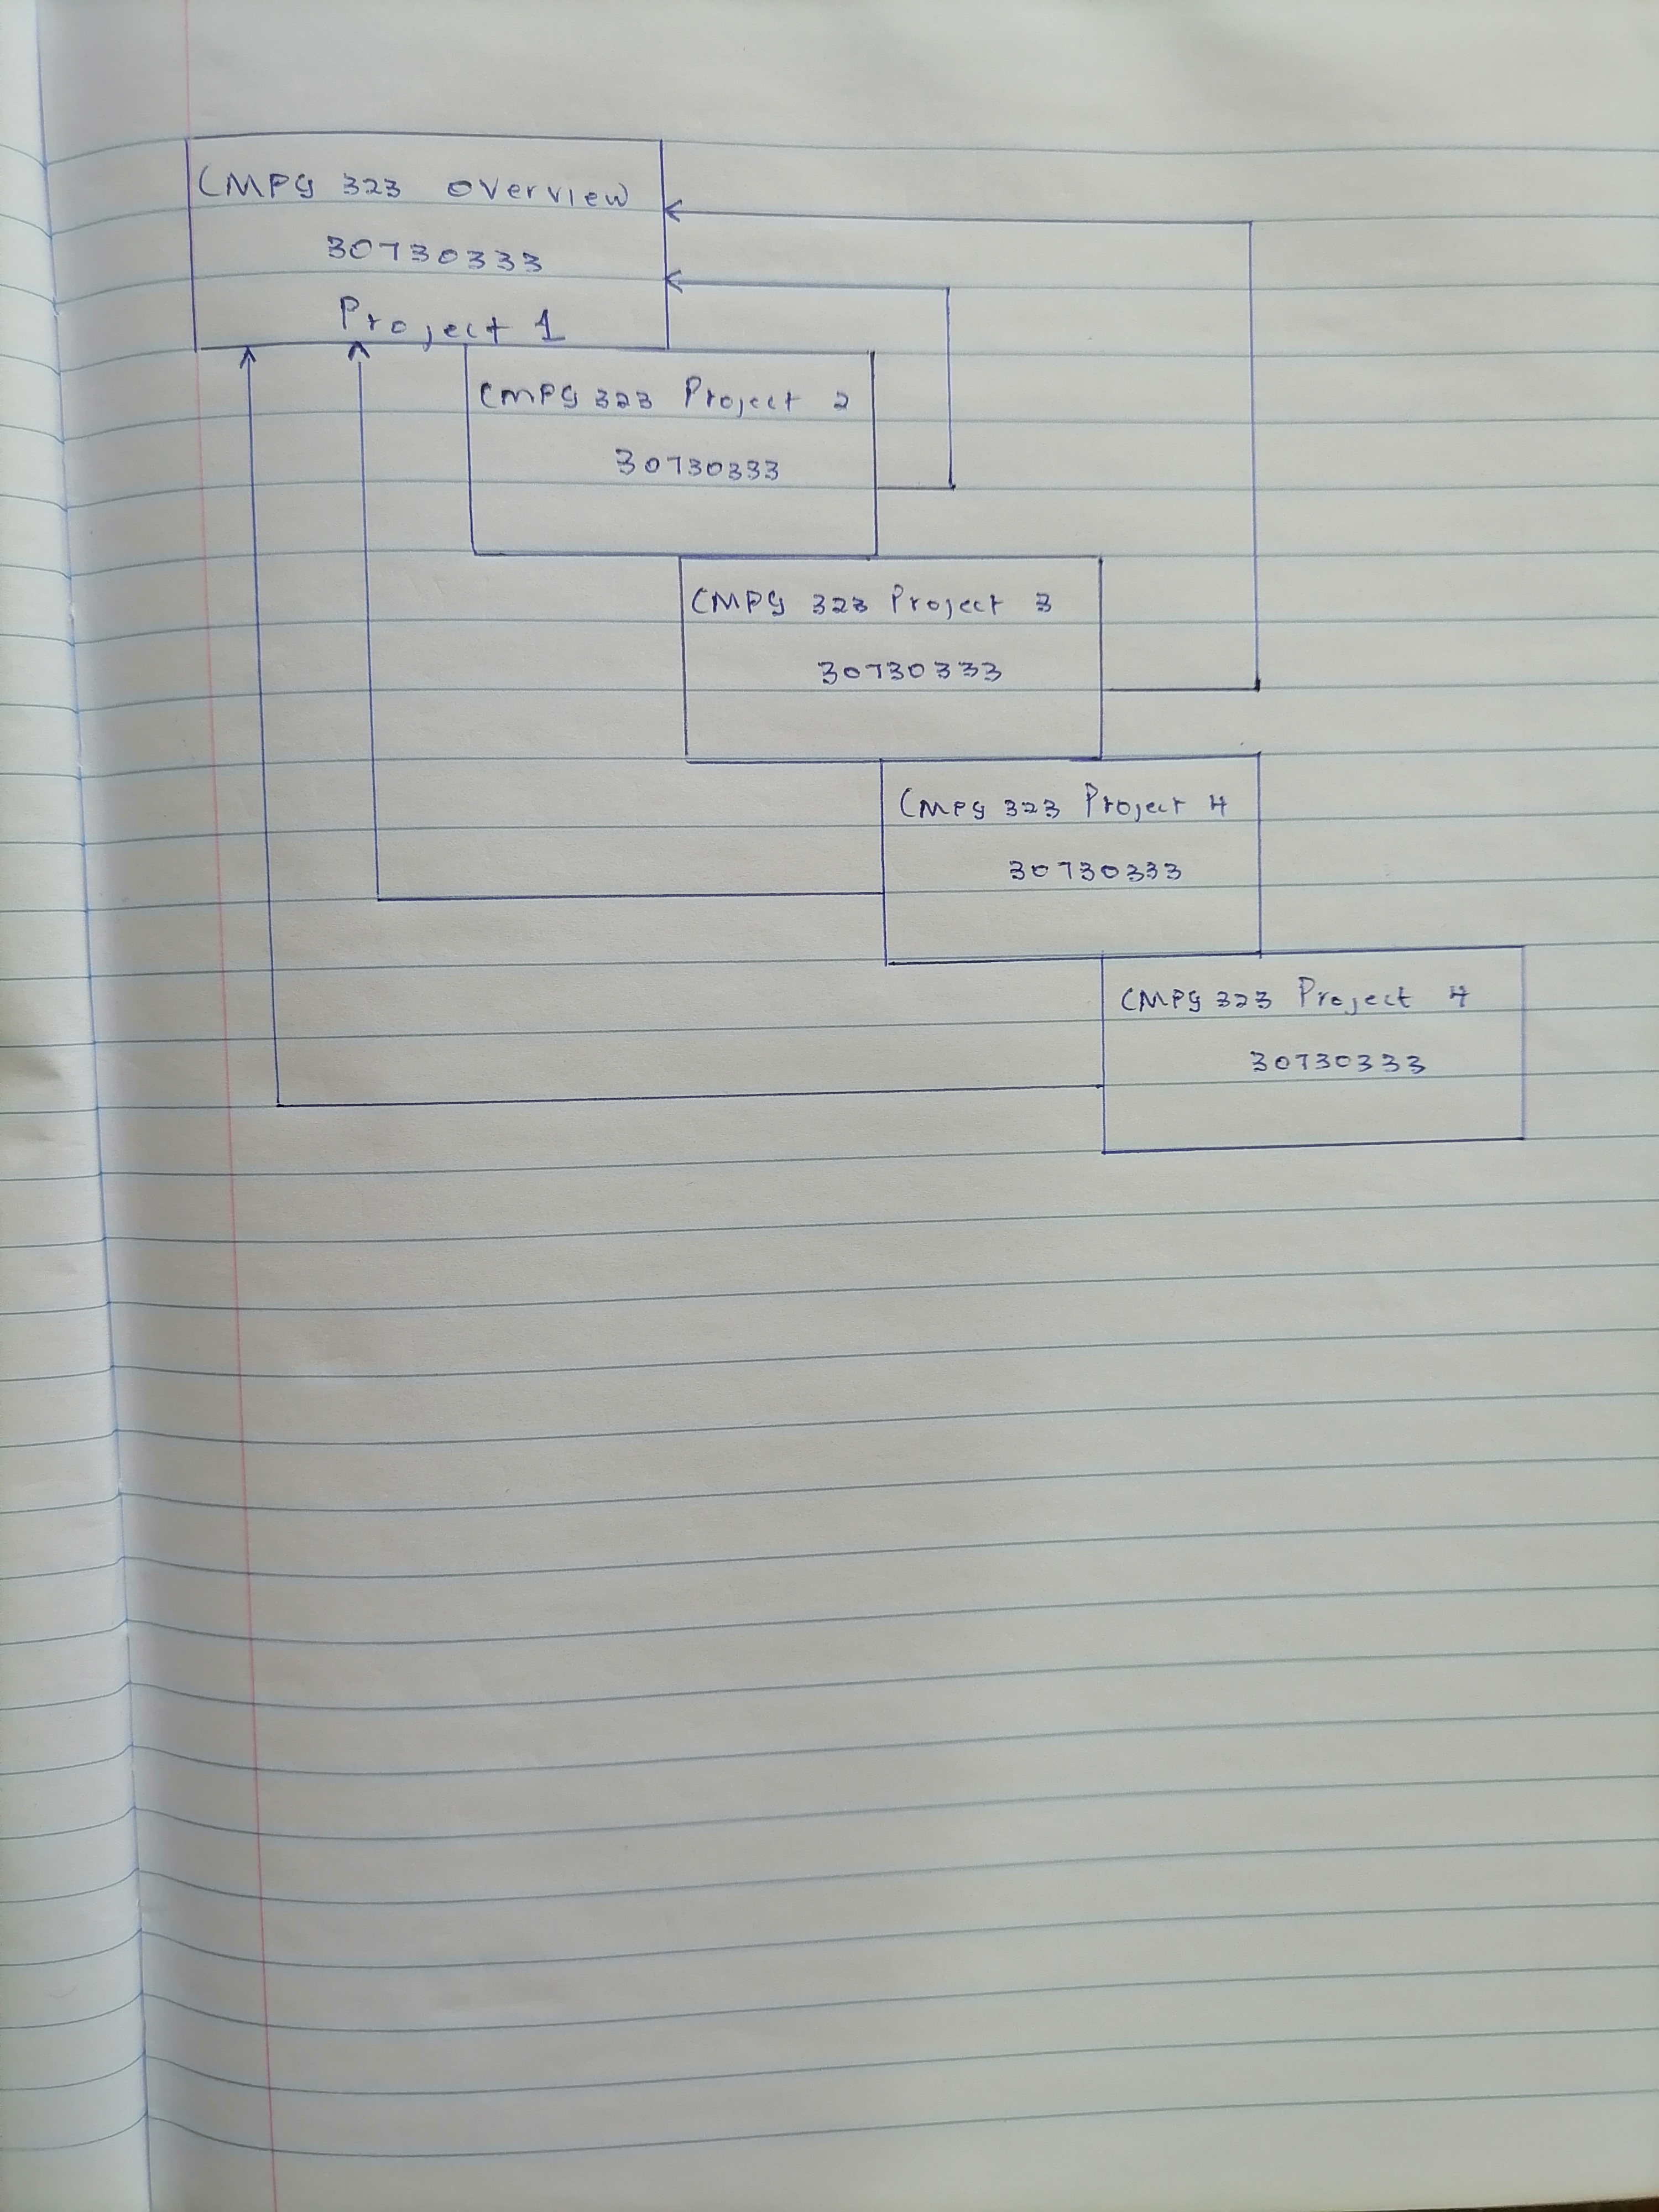 CMPG 323 Overview
30730333
Project 1
CMPG 323 Project 2
30730333
CMPG 323 Project 3
30730333
CMPG 323 Project 4
30730333
CMPG 323 Project 4
30730333